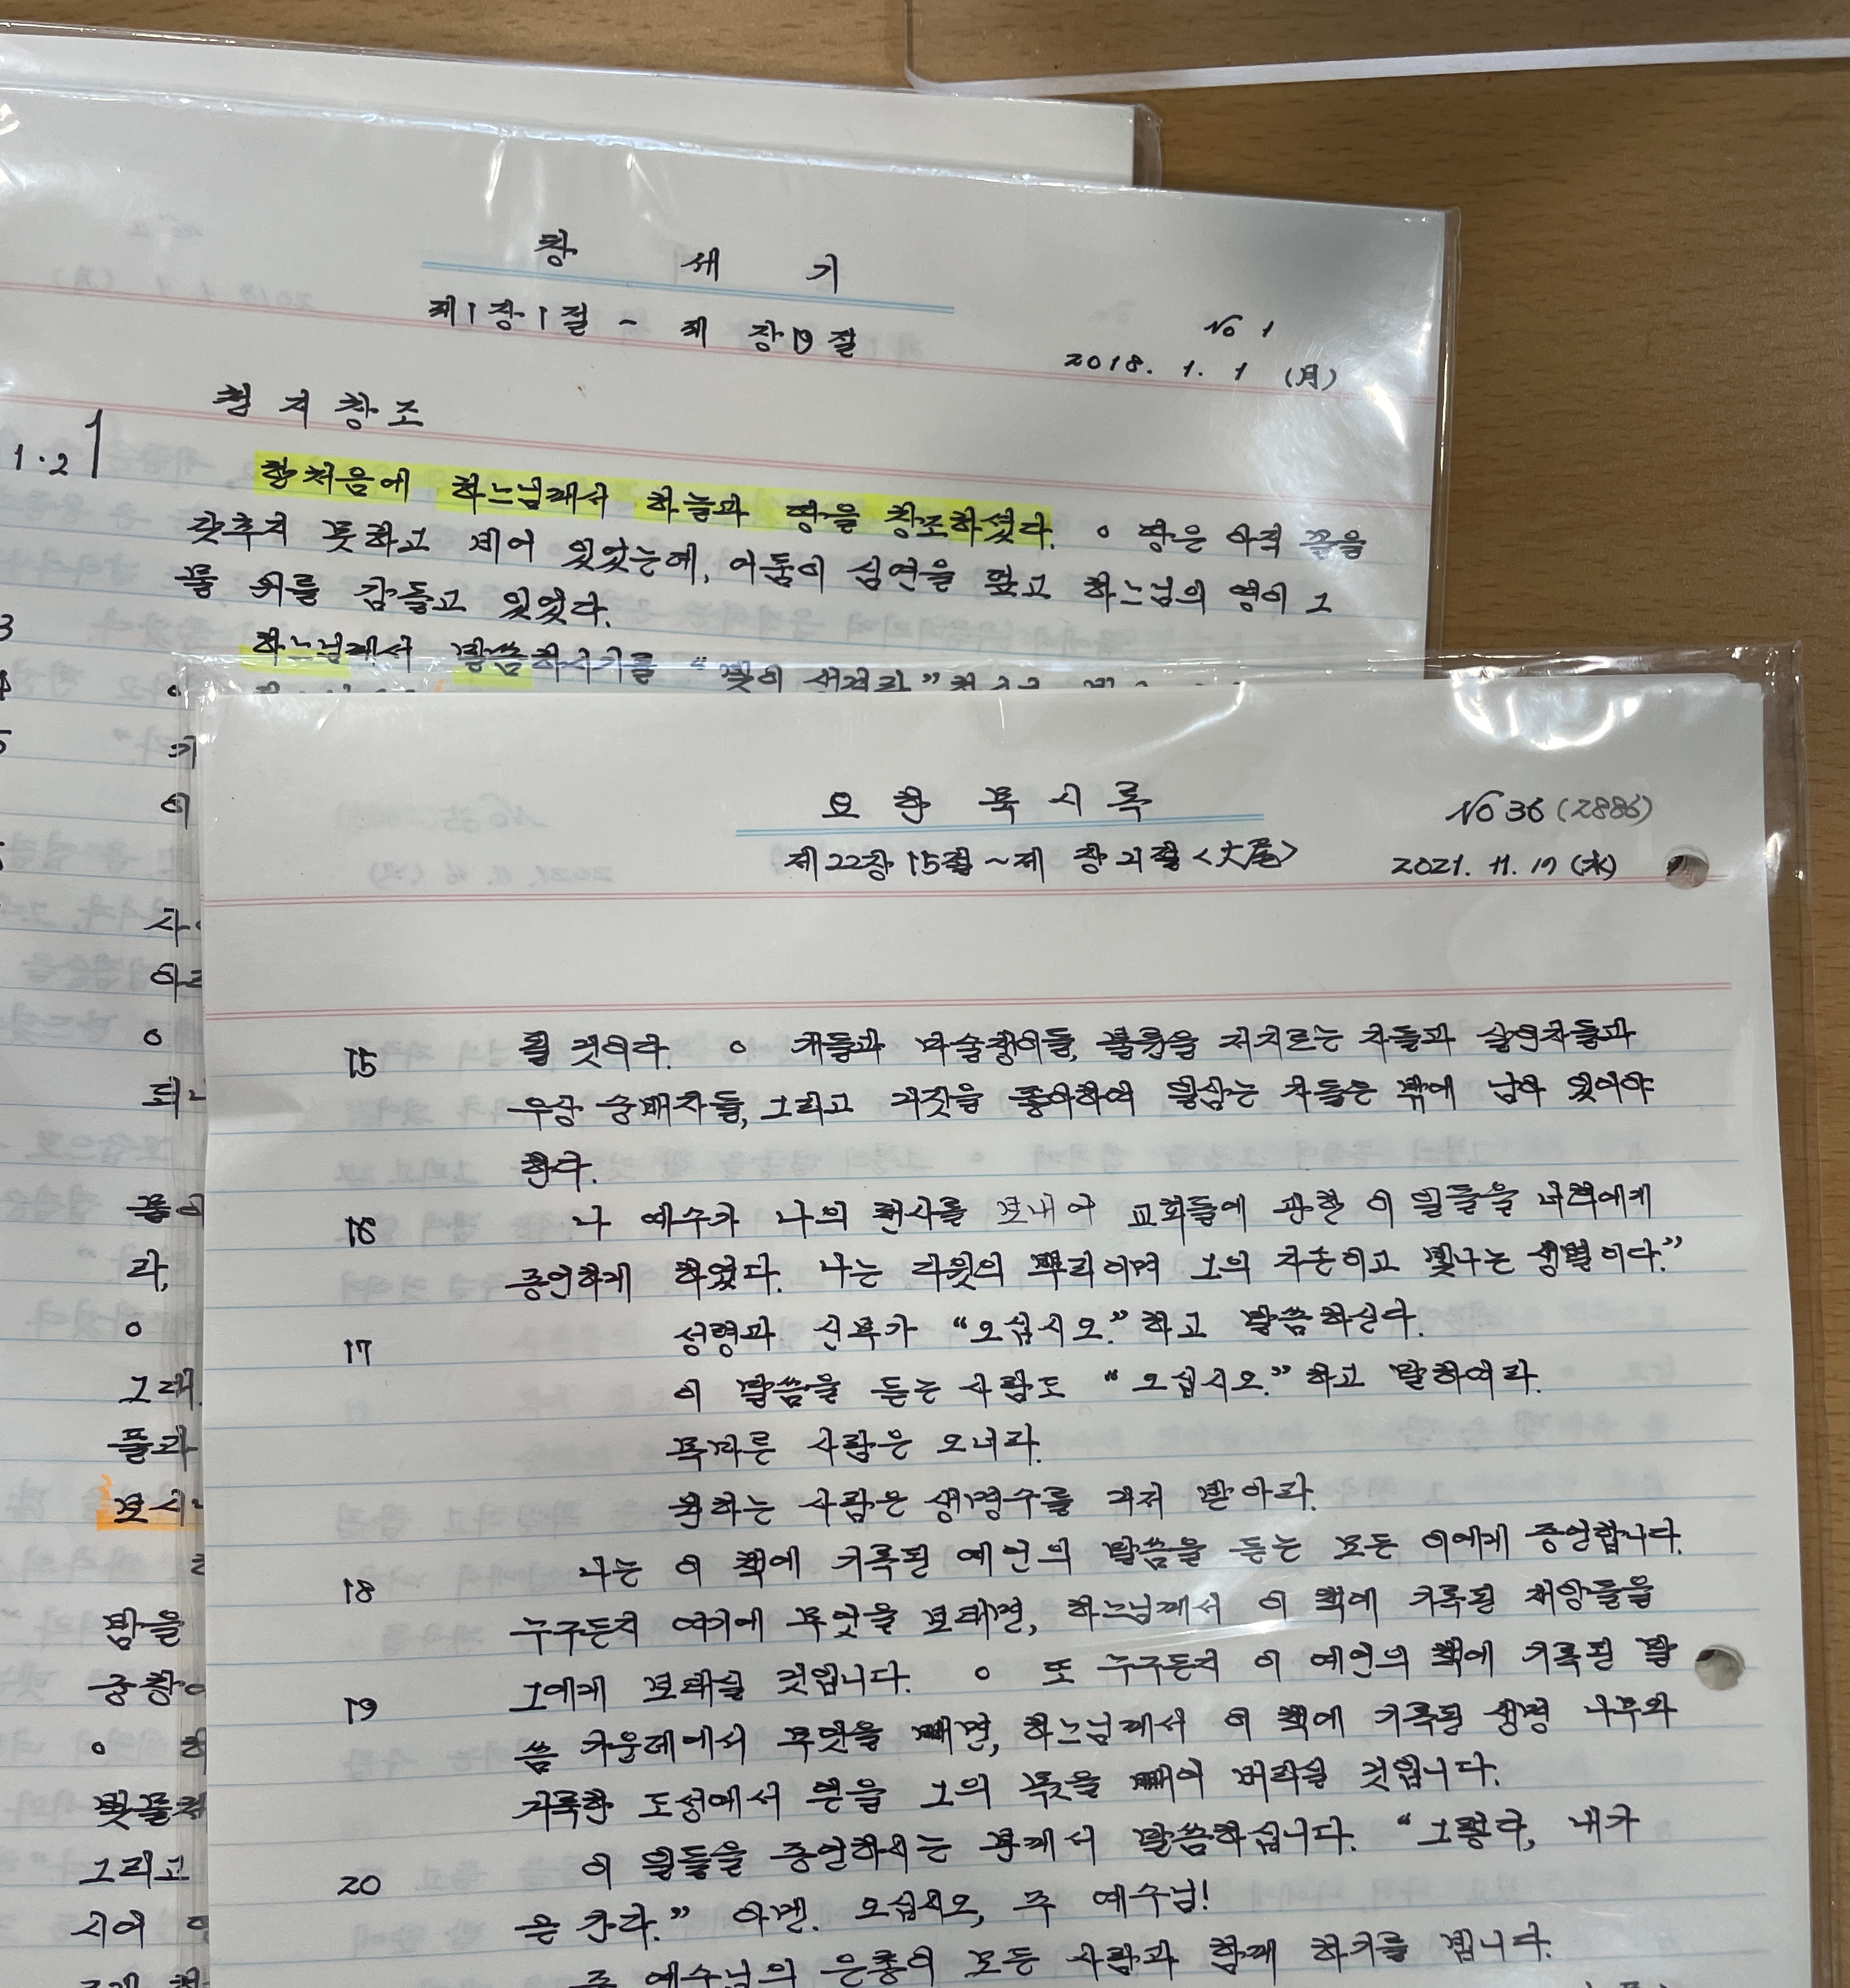 창 세 기
제1장1절 - 제 장19절
No 1
2018. 1. 1 (月)
천지창조
1·2
한처음에 하느님께서 하늘과 땅을 창조하셨다. ○ 땅은 아직 꼴을
갖추지 못하고 비어 있었는데, 어둠이 심연을 덮고 하느님의 영이 그
물 위를 감돌고 있었다.
3
하느님께서 말씀하시기를 “빛이 생겨라”
요 한 묵 시 록
No 36 (2886)
제22장15절~제 장21절<大尾>
2021. 11. 17 (水)
15 될 것이다. ○ 개들과 마술쟁이들, 불륜을 저지르는 자들과 살인자들과
우상 숭배자들, 그리고 거짓을 좋아하여 일삼는 자들은 밖에 남아 있어야
한다.
16 나 예수가 나의 천사를 보내어 교회들에 관한 이 일들을 너희에게
증언하게 하였다. 나는 다윗의 뿌리이며 그의 자손이고 빛나는 샛별이다.”
17 성령과 신부가 “오십시오.”하고 말씀하신다.
이 말씀을 듣는 사람도 “오십시오.”하고 말하여라.
목마른 사람은 오너라.
원하는 사람은 생명수를 거저 받아라.
18 나는 이 책에 기록된 예언의 말씀을 듣는 모든 이에게 증언합니다.
누구든지 여기에 무엇을 보태면, 하느님께서 이 책에 기록된 재앙들을
그에게 보태실 것입니다. ○ 또 누구든지 이 예언의 책에 기록된 말
19 씀 가운데에서 무엇을 빼면, 하느님께서 이 책에 기록된 생명 나무와
거룩한 도성에서 얻을 그의 몫을 빼어 버리실 것입니다.
20 이 일들을 증언하시는 분께서 말씀하십니다. “그렇다, 내가
곧 간다.” 아멘. 오십시오, 주 예수님!
주 예수님의 은총이 모든 사람과 함께 하기를 빕니다.